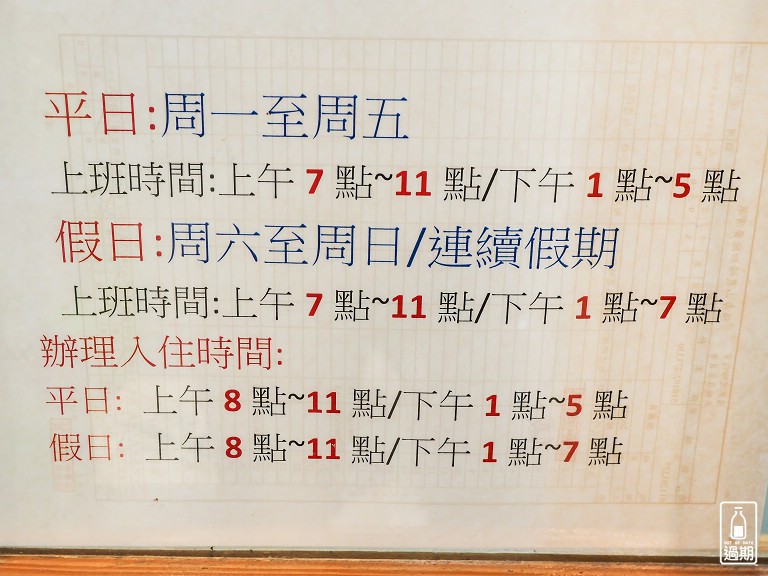 平日:周一至周五
上班時間:上午 7 點~11 點/下午 1 點~5 點
假日:周六至周日/連續假期
上班時間:上午 7 點~11 點/下午 1 點~7 點
辦理入住時間:
平日: 上午 8 點~11 點/下午 1 點~5 點
假日: 上午 8 點~11 點/下午 1 點~7 點
OUT OF DATE
過期